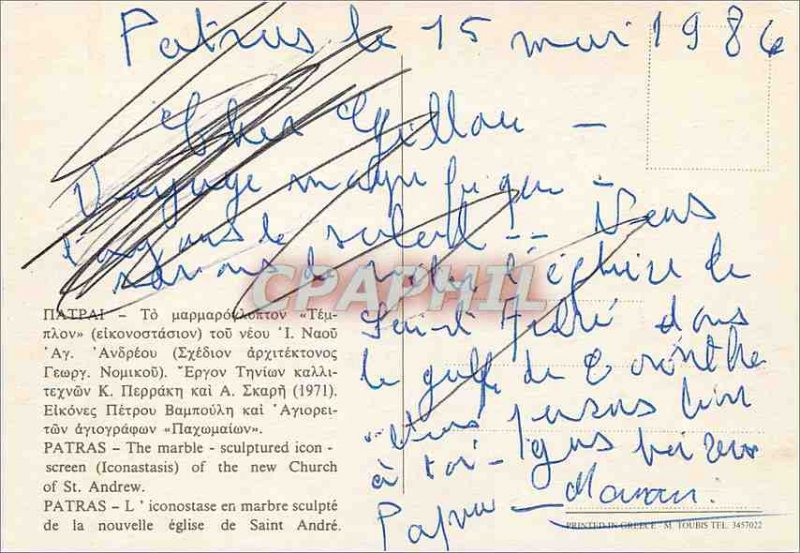 Patras le 15 mai 1986
Cher
Voyage magnifique
le soleil -- Nous
venons de visiter l'église de
Saint André dans
le golfe de Corinthe
Nous pensons bien
à toi - gros baisers
Papa - Maman.
CPAPHIL
ΠΑΤΡΑΙ – Τὸ μαρμαρόγλυπτον «Τέμ-
πλον» (εἰκονοστάσιον) τοῦ νέου Ἱ. Ναοῦ
Ἁγ. Ἀνδρέου (Σχέδιον ἀρχιτέκτονος
Γεωργ. Νομικοῦ). Ἔργον Τηνίων καλλι-
τεχνῶν Κ. Περράκη καὶ Α. Σκαρῆ (1971).
Εἰκόνες Πέτρου Βαμπούλη καὶ Ἁγιορει-
τῶν ἁγιογράφων «Παχωμαίων».
PATRAS – The marble - sculptured icon -
screen (Iconastasis) of the new Church
of St. Andrew.
PATRAS – L ' iconostase en marbre sculpté
de la nouvelle église de Saint André.
PRINTED IN GREECE - M. TOUBIS TEL. 3457022